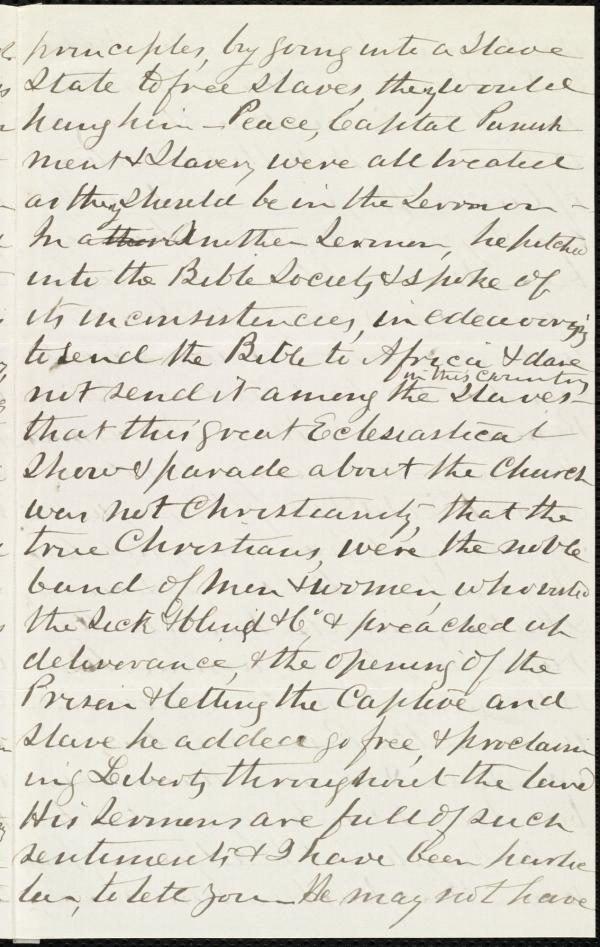 principles, by going into a Slave
State to free Slaves, they would
hang him - Peace, Capital Punish
ment & Slavery were all treated
as they should be in the Sermon -
In a other Another Sermon, he pitched
into the Bible Society & spoke of
its inconsistencies, in edeavoring
to send the Bible to Africa & dare
in this Country
not send it among the Slaves -
that this great Eclesiastical
Show & parade about the Church
was not Christianity, that the
true Christians, were the noble
band of men & women, who visited
the Sick & blind &c & preached up
deliverance, & the opening of the
Prison & letting the Captive and
Slave he added go free, & proclaim
ing Liberty throughout the land
His Sermons are full of such
sentiments & I have been particu
lar, to tell you - He may not have